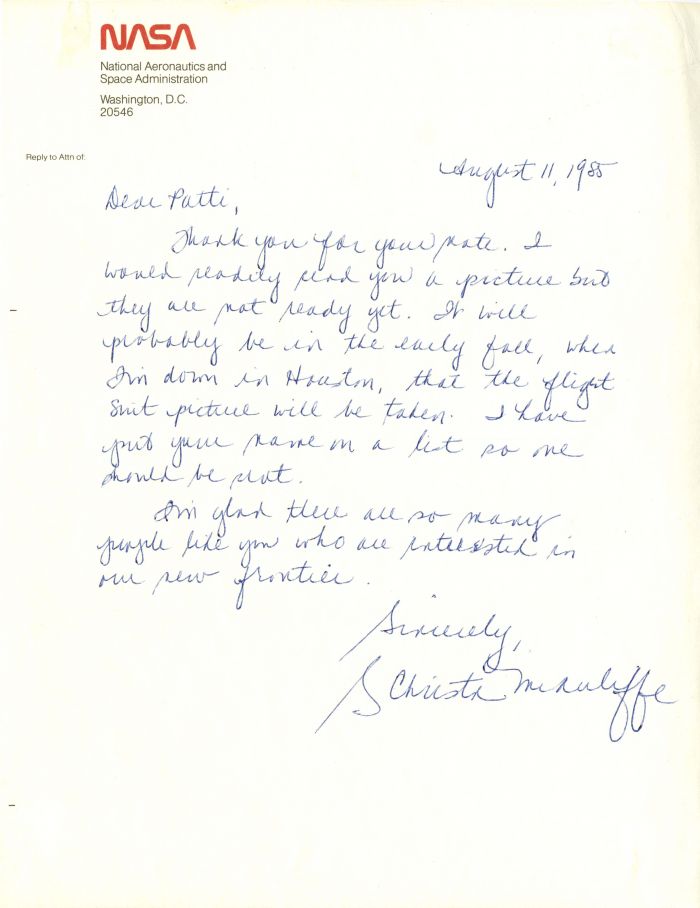 NASA
National Aeronautics and
Space Administration
Washington, D.C.
20546
Reply to Attn of:
August 11, 1985
Dear Patti,
Thank you for your note. I
would readily send you a picture but
they are not ready yet. It will
probably be in the early fall, when
I'm down in Houston, that the flight
suit picture will be taken. I have
put your name on a list so one
should be sent.
I'm glad there are so many
people like you who are interested in
our new frontier.
Sincerely,
S Christa McAuliffe